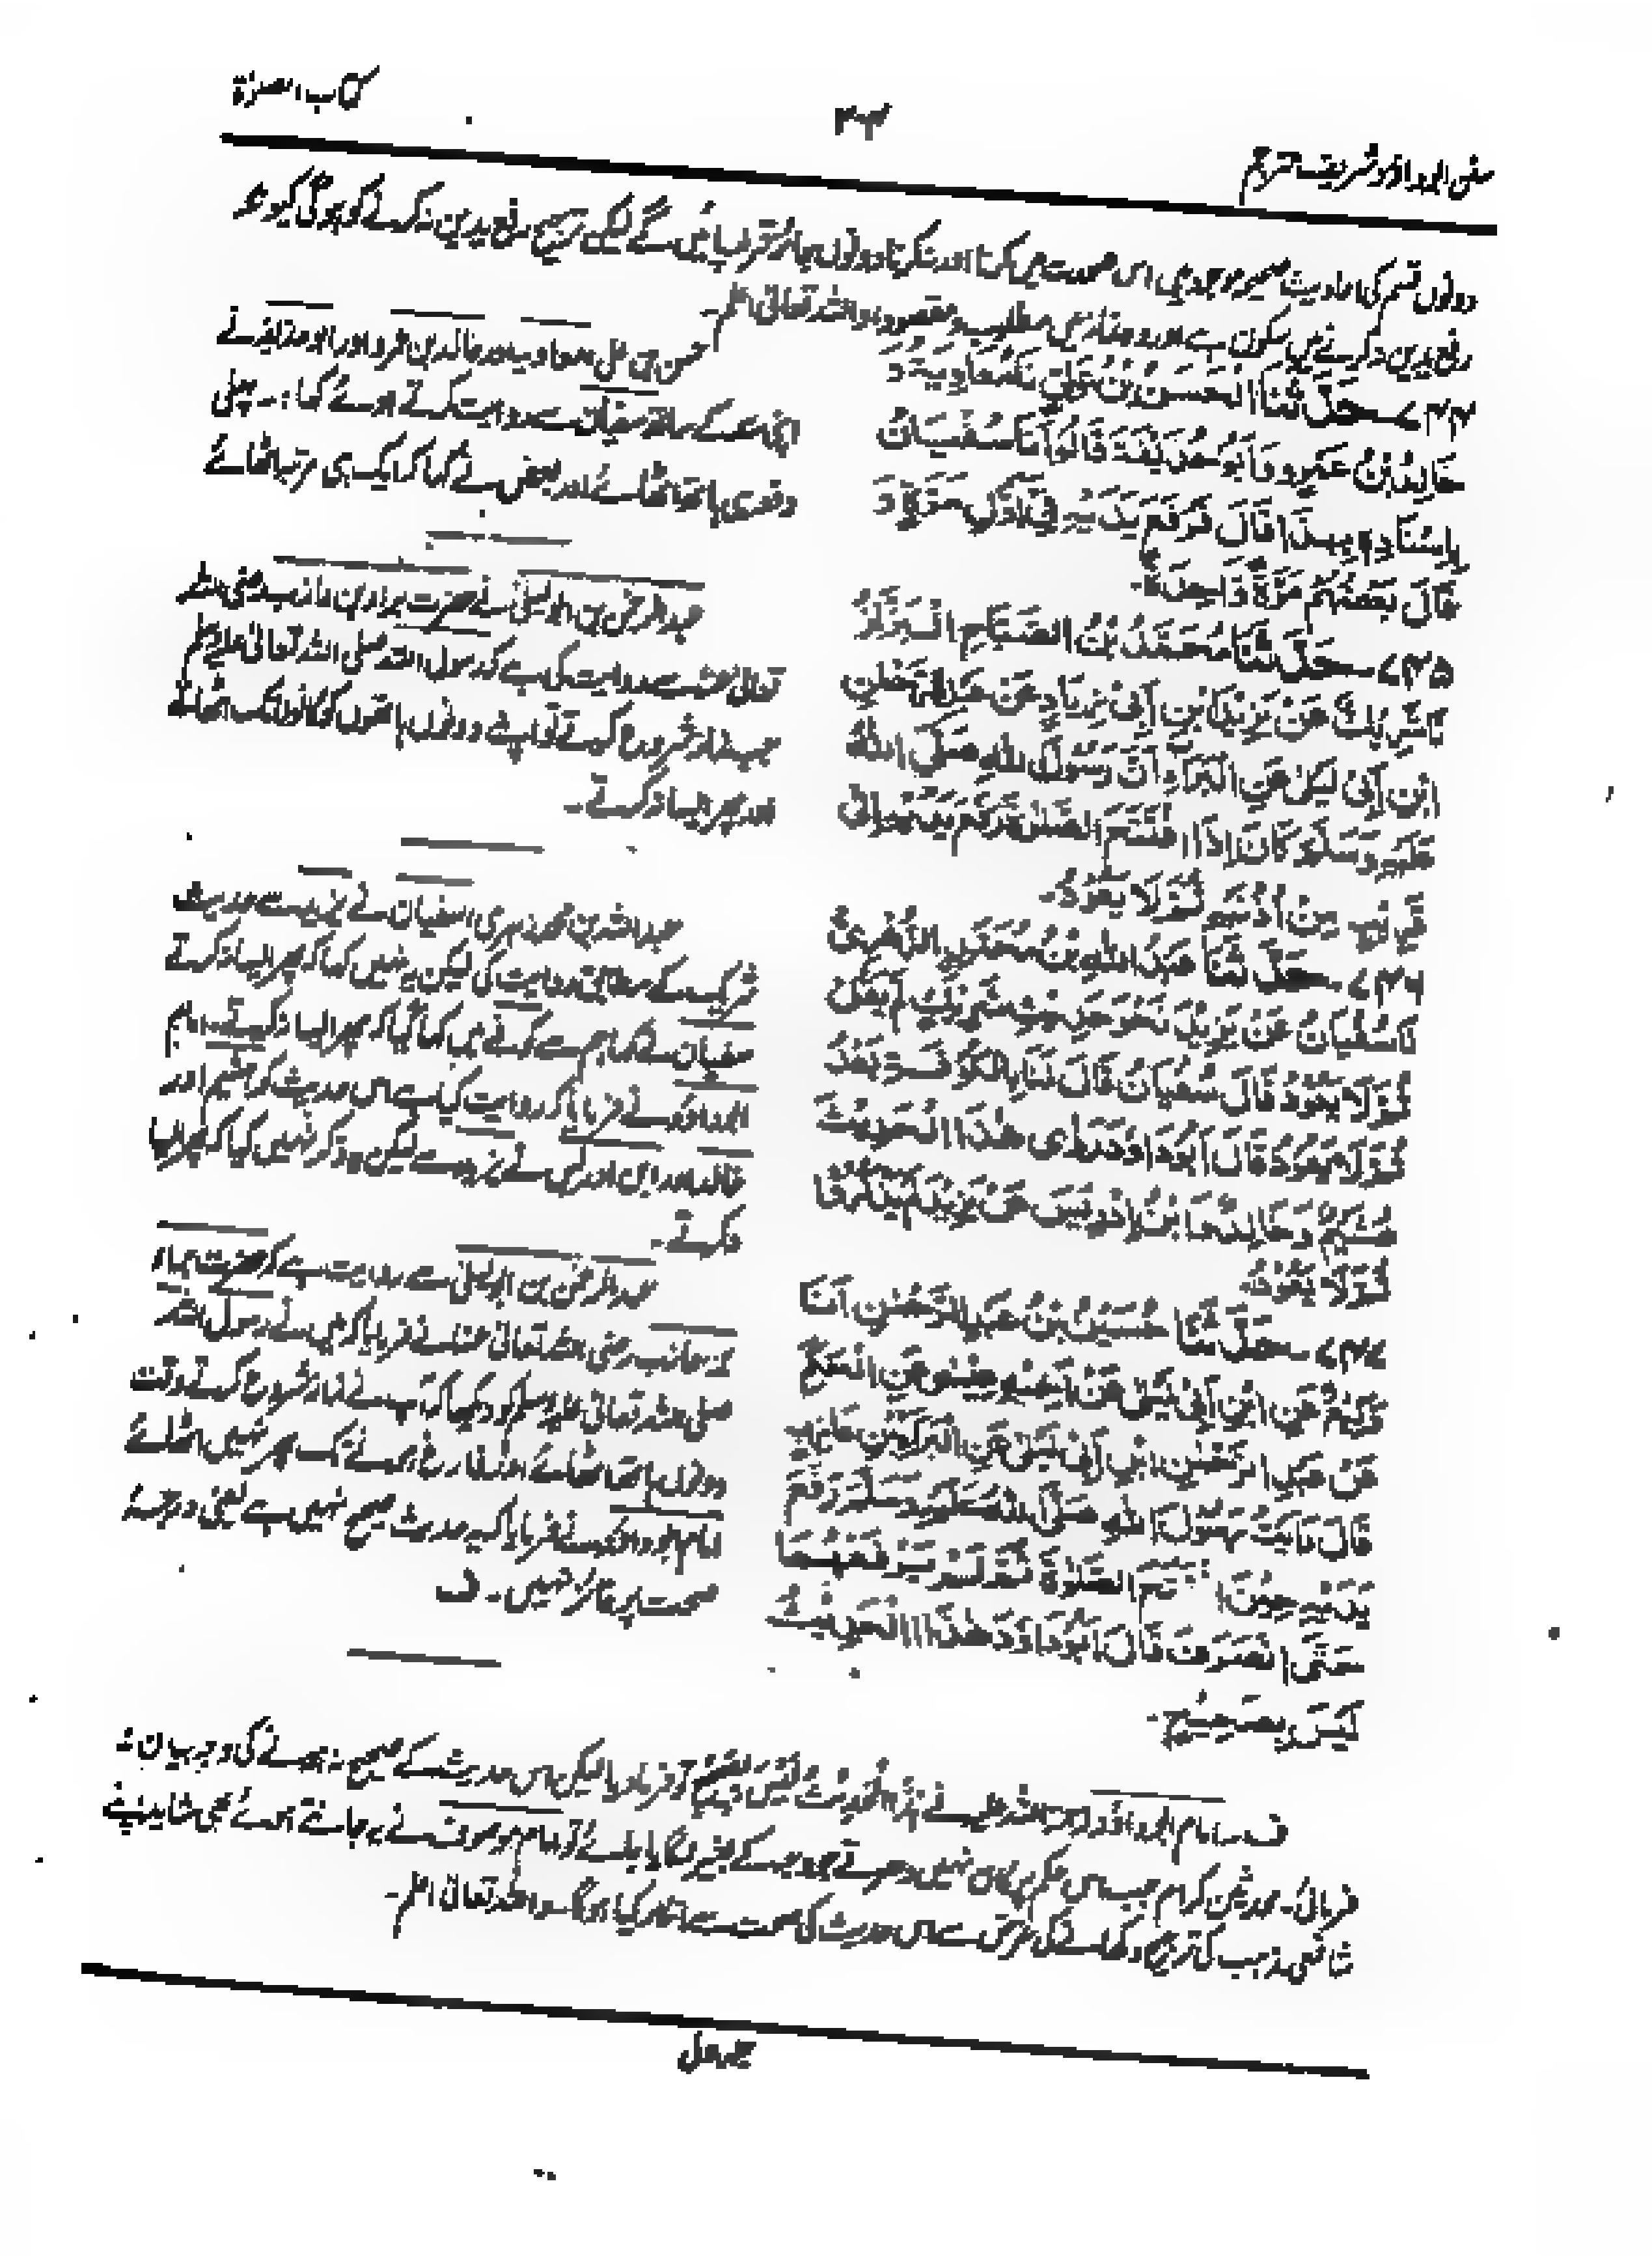 کتاب الصلوٰۃ
سنن ابوداؤد شریف مترجم
دونوں قسم کی احادیث صحیحہ موجود ہیں اس صورت میں کرنا اور نہ کرنا دونوں جائز قرار پائیں گے لیکن ترجیح رفع یدین نہ کرنے کو ہوگی کیونکہ
رفع یدین نہ کرنے میں سکون ہے اور وہ نماز میں مطلوب و مقصود۔ واللہ تعالیٰ اعلم۔
۷۴۴۔ حَدَّثَنَا الْحَسَنُ بْنُ عَلِيٍّ نَا مُعَاوِيَةُ وَ
خَالِدُ بْنُ عَمْرٍو وَأَبُو حُذَيْفَةَ قَالُوا نَا سُفْيَانُ
بِإِسْنَادِهِ بِهٰذَا قَالَ فَرَفَعَ يَدَيْهِ فِي أَوَّلِ مَرَّةٍ وَ
قَالَ بَعْضُهُمْ مَرَّةً وَاحِدَةً۔
حسن بن علی، معاویہ اور خالد بن عمرو اور ابو حذیفہ نے
اپنی سند کے ساتھ سفیان سے روایت کرتے ہوئے کہا:۔ پہلی
دفعہ ہی ہاتھ اٹھائے اور بعض نے کہا کہ ایک ہی مرتبہ اٹھائے
۷۴۵۔ حَدَّثَنَا مُحَمَّدُ بْنُ الصَّبَّاحِ الْبَزَّازُ
نَا شَرِيكٌ عَنْ يَزِيدَ بْنِ أَبِي زِيَادٍ عَنْ عَبْدِ الرَّحْمٰنِ
ابْنِ أَبِي لَيْلٰى عَنِ الْبَرَاءِ أَنَّ رَسُولَ اللهِ صَلَّى اللهُ
عَلَيْهِ وَسَلَّمَ كَانَ إِذَا افْتَتَحَ الصَّلٰوةَ رَفَعَ يَدَيْهِ إِلٰى
قَرِيبٍ مِنْ أُذُنَيْهِ ثُمَّ لَا يَعُودُ۔
عبدالرحمٰن بن ابو لیلیٰ نے حضرت براء بن عازب رضی اللہ
تعالیٰ عنہ سے روایت کی ہے کہ رسول اللہ صلی اللہ تعالیٰ علیہ وسلم
جب نماز شروع کرتے تو اپنے دونوں ہاتھوں کو کانوں تک اٹھاتے
اور پھر ایسا نہ کرتے۔
۷۴۶۔ حَدَّثَنَا عَبْدُ اللهِ بْنُ مُحَمَّدٍ الزُّهْرِيُّ
نَا سُفْيَانُ عَنْ يَزِيدَ نَحْوَ حَدِيثِ شَرِيكٍ لَمْ يَقُلْ
ثُمَّ لَا يَعُودُ قَالَ سُفْيَانُ قَالَ لَنَا بِالْكُوفَةِ بَعْدُ
ثُمَّ لَا يَعُودُ قَالَ أَبُو دَاوُدَ رَوٰى هٰذَا الْحَدِيثَ
هُشَيْمٌ وَخَالِدٌ وَابْنُ إِدْرِيسَ عَنْ يَزِيدَ لَمْ يَذْكُرُوا
ثُمَّ لَا يَعُودُ
عبداللہ بن محمد زہری، سفیان نے یزید سے حدیث
شریک کے مطابق روایت کی لیکن یہ نہیں کہا کہ پھر ایسا نہ کرتے
سفیان نے کہا ہم سے کوفے میں کہا گیا کہ پھر ایسا نہ کرتے۔ امام
ابوداؤد نے فرمایا کہ روایت کیا ہے اس حدیث کو ہشیم اور
خالد اور ابن ادریس نے یزید سے لیکن یہ ذکر نہیں کیا کہ پھر ایسا
نہ کرتے۔
۷۴۷۔ حَدَّثَنَا حُسَيْنُ بْنُ عَبْدِ الرَّحْمٰنِ أَنَا
وَكِيعٌ عَنِ ابْنِ أَبِي لَيْلٰى عَنْ أَخِيهِ عِيسٰى عَنِ الْحَكَمِ
عَنْ عَبْدِ الرَّحْمٰنِ ابْنِ أَبِي لَيْلٰى عَنِ الْبَرَاءِ بْنِ عَازِبٍ
قَالَ رَأَيْتُ رَسُولَ اللهِ صَلَّى اللهُ عَلَيْهِ وَسَلَّمَ رَفَعَ
يَدَيْهِ حِينَ افْتَتَحَ الصَّلٰوةَ ثُمَّ لَمْ يَرْفَعْهُمَا
حَتّٰى انْصَرَفَ قَالَ أَبُو دَاوُدَ هٰذَا الْحَدِيثُ
لَيْسَ بِصَحِيحٍ۔
عبدالرحمٰن بن ابو لیلیٰ سے روایت ہے کہ حضرت براء
بن عازب رضی اللہ تعالیٰ عنہ نے فرمایا کہ میں نے رسول اللہ
صلی اللہ تعالیٰ علیہ وسلم کو دیکھا کہ آپ نے نماز شروع کرتے وقت
دونوں ہاتھ اٹھائے اور فارغ ہونے تک پھر نہیں اٹھائے
امام ابوداؤد نے فرمایا کہ یہ حدیث صحیح نہیں ہے یعنی درجۂ
صحت پر فائز نہیں۔ ف
ف۔ امام ابوداؤد رحمۃ اللہ علیہ نے ہٰذَا الْحَدِيثُ لَيْسَ بِصَحِيحٍ تو فرما دیا لیکن اس حدیث کے صحیح نہ ہونے کی وجہ بیان نہ
فرمائی۔ محدثین کرام جب اس حکم پر کان نہیں دھرتے جو وجہ کے بغیر لگایا جائے تو امام موصوف نے یہ جانتے ہوئے بھی شاید اپنے
شافعی مذہب کی ترجیح دکھانے کی غرض سے اس حدیث کی صحت سے انکار کیا ہوگا۔ واللہ تعالیٰ اعلم۔